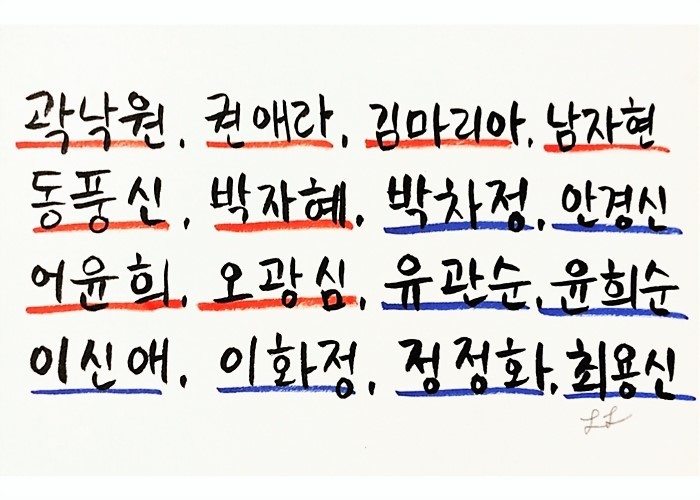 곽낙원. 권애라. 김마리아. 남자현
동풍신. 박자혜. 박차정. 안경신
어윤희. 오광심. 유관순. 윤희순
이신애. 이화정. 정정화. 최용신